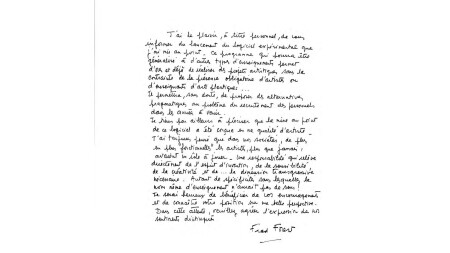 J'ai le plaisir, à titre personnel, de vous
informer du lancement du logiciel expérimental que
j'ai mis au point. Ce programme qui pourra être
généralisé à d'autres types d'enseignements permet
d'ores et déjà de réaliser des projets artistiques sans la
contrainte de la présence obligatoire d'artistes ou
d'enseignants d'art plastiques ...
Je permettrai, sans doute, de proposer des alternatives
pragmatiques au problème du recrutement des personnels
dans les années à venir.
Je tiens par ailleurs à préciser que la mise au point
de ce logiciel a été conçue en ma qualité d'artiste.
J'ai toujours pensé que dans nos sociétés, de plus
en plus fonctionnelles les artistes, plus que jamais,
avaient un rôle à jouer. Une responsabilité qui relève
directement de l'esprit d'invention, de la sensibilité
de la créativité et de la dimension transgressive
nécessaire. Autant de spécificités sans lesquelles le
mon même d'enseignement n'aurait pas de sens !
Je serai heureux de bénéficier de vos encouragements
et de connaître votre position sur une telle perspective.
Dans cette attente, veuillez agréer l'expression de mes
sentiments distingués
Fred Forest